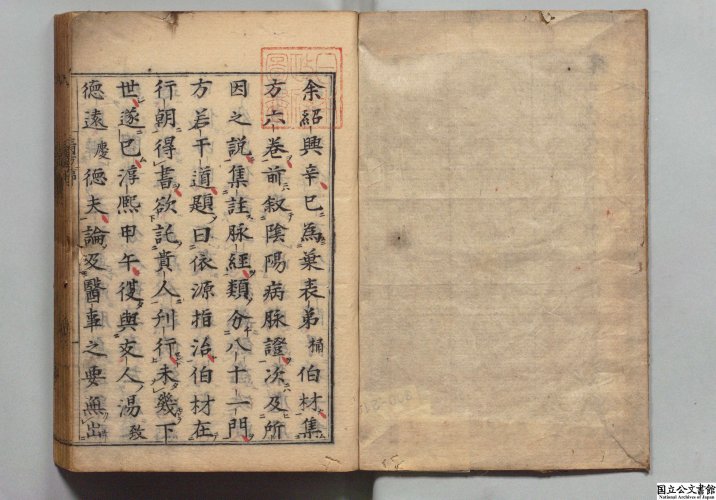 余紹興辛巳為葉表弟楠伯材集
方六巻前叙陰陽病脉證次及所
因之說集註脉經類分八十一門
方若干道題曰依源指治伯材在
行朝得書欲託貴人刋行未幾下
世遂已淳熙甲午復與友人湯致
德遠慶德夫論及醫事之要無出
国立公文書館
National Archives of Japan